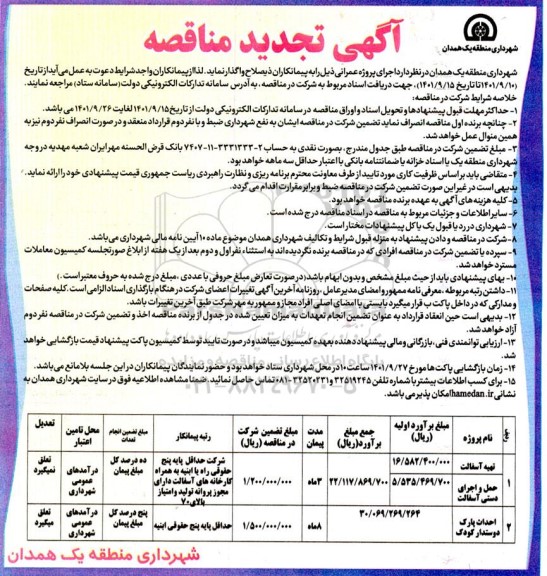 آگهی تجدید مناقصه
شهرداری منطقه یک همدان
شهرداری منطقه یک همدان در نظر دارد اجرای پروژه عمرانی ذیل را به پیمانکاران ذیصلاح واگذار نماید. لذا از پیمانکاران واجد شرایط دعوت به عمل می آید از تاریخ
(۱۴۰۱/۹/۱۰ تا تاریخ ۱۴۰۱/۹/۱۵)، جهت دریافت اسناد مربوط به شرکت در مناقصه، به آدرس سامانه تدارکات الکترونیکی دولت (سامانه ستاد) مراجعه نمایند.
خلاصه شرایط شرکت در مناقصه:
۱- حداکثر مهلت قبول پیشنهادها و تحویل اسناد و اوراق مناقصه در سامانه تدارکات الکترونیکی دولت از تاریخ ۱۴۰۱/۹/۱۵ لغایت ۱۴۰۱/۹/۲۶ می باشد.
۲- چنانچه برنده اول مناقصه انصراف نماید تضمین شرکت در مناقصه ایشان به نفع شهرداری ضبط و با نفر دوم قرارداد منعقد و در صورت انصراف نفر دوم نیز به
همین منوال عمل خواهد شد.
۳- مبلغ تضمین شرکت در مناقصه طبق جدول مندرج، بصورت نقدی به حساب ۲-۳۳۳۱۳۳۳-۱۱-۷۴۰۷ بانک قرض الحسنه مهر ایران شعبه مهدیه در وجه
شهرداری منطقه یک با اسناد خزانه یا ضمانتنامه بانکی با اعتبار حداقل سه ماهه خواهد بود.
۴- متقاضی باید بر اساس ظرفیت کاری مورد تایید از طرف معاونت محترم برنامه ریزی و نظارت راهبردی ریاست جمهوری قیمت پیشنهادی خود را ارائه نماید.
بدیهی است در غیر این صورت تضمین شرکت در مناقصه ضبط و برابر مقررات اقدام می گردد.
۵- کلیه هزینه های آگهی به عهده برنده مناقصه خواهد بود.
۶- سایر اطلاعات و جزئیات مربوط به مناقصه در اسناد مناقصه درج شده است.
۷- شهرداری در رد یا قبول یک یا کل پیشنهادات مختار است.
۸- شرکت در مناقصه و دادن پیشنهاد به منزله قبول شرایط و تکالیف شهرداری همدان موضوع ماده ۱۰ آیین نامه مالی شهرداری می باشد.
۹- سپرده یا تضمین شرکت در مناقصه افرادی که در مناقصه برنده نگردیده اند به استثناء نفر اول و دوم بعد از یک هفته از ابلاغ صورتجلسه کمیسیون معاملات
مسترد خواهد شد.
۱۰- بهای پیشنهادی باید از حیث مبلغ مشخص و بدون ابهام باشد (در صورت تعارض مبلغ حروفی با عددی، مبلغ درج شده به حروف معتبر است.)
۱۱- داشتن رتبه مربوطه، معرفی نامه ممهور و امضای مدیر عامل، روزنامه آخرین آگهی تغییرات اعضای شرکت در هنگام بارگذاری اسناد الزامی است. کلیه صفحات
و مدارکی که در داخل پاکت ب قرار میگیرد بایستی با امضای اصلی افراد مجاز و ممهور به مهر شرکت طبق آخرین تغییرات باشد.
۱۲- بدیهی است حین انعقاد قرارداد به عنوان تضمین انجام تعهدات به میزان تعیین شده در جدول از برنده مناقصه اخذ و تضمین شرکت در مناقصه نفر دوم
آزاد خواهد شد.
۱۳- ارزیابی توانمندی فنی، بازرگانی و مالی پیشنهاد دهنده بعهده کمیسیون میباشد و در صورت تایید توسط کمیسیون پاکت پیشنهاد قیمت بازگشایی خواهد
شد.
۱۴- زمان بازگشایی پاکت ها مورخ ۱۴۰۱/۹/۲۷ ساعت ۱۰ در محل شهرداری ستاد خواهد بود و حضور نمایندگان پیمانکاران در این جلسه بلامانع می باشد.
۱۵- برای کسب اطلاعات بیشتر با شماره تلفن ۳۲۵۱۹۲۴۵ و ۳۲۵۲۰۳۳۱-۰۸۱ تماس حاصل نمائید. ضمنا مشاهده اطلاعیه فوق در سایت شهرداری همدان به
نشانی hamedan.ir امکان پذیر می باشد.
نام پروژه | مبلغ برآورد اولیه (ریال) | جمع مبلغ برآورد (ریال) | مدت پیمان | مبلغ تضمین شرکت در مناقصه (ریال) | رتبه پیمانکار | مبلغ تضمین انجام تعهدات | محل تامین اعتبار | تعدیل
۱ | تهیه آسفالت | ۱۶/۵۸۲/۴۰۰/۰۰۰ | ۲۲/۱۱۷/۸۶۹/۷۰۰ | ۳ ماه | ۱/۲۰۰/۰۰۰/۰۰۰ | شرکت حداقل پایه پنج حقوقی راه یا ابنیه به همراه کارخانه های آسفالت دارای مجوز پروانه تولید و امتیاز بالای ۷۰ | ده درصد کل مبلغ پیمان | درآمدهای عمومی شهرداری | تعلق نمیگیرد
حمل و اجرای دستی آسفالت | ۵/۵۳۵/۴۶۹/۷۰۰
۲ | احداث پارک دوستدار کودک | ۳۰/۰۶۹/۲۶۹/۲۶۴ | ۸ ماه | ۱/۵۰۰/۰۰۰/۰۰۰ | حداقل پایه پنج حقوقی ابنیه | پنج درصد کل مبلغ پیمان | درآمدهای عمومی شهرداری | تعلق میگیرد
شهرداری منطقه یک همدان